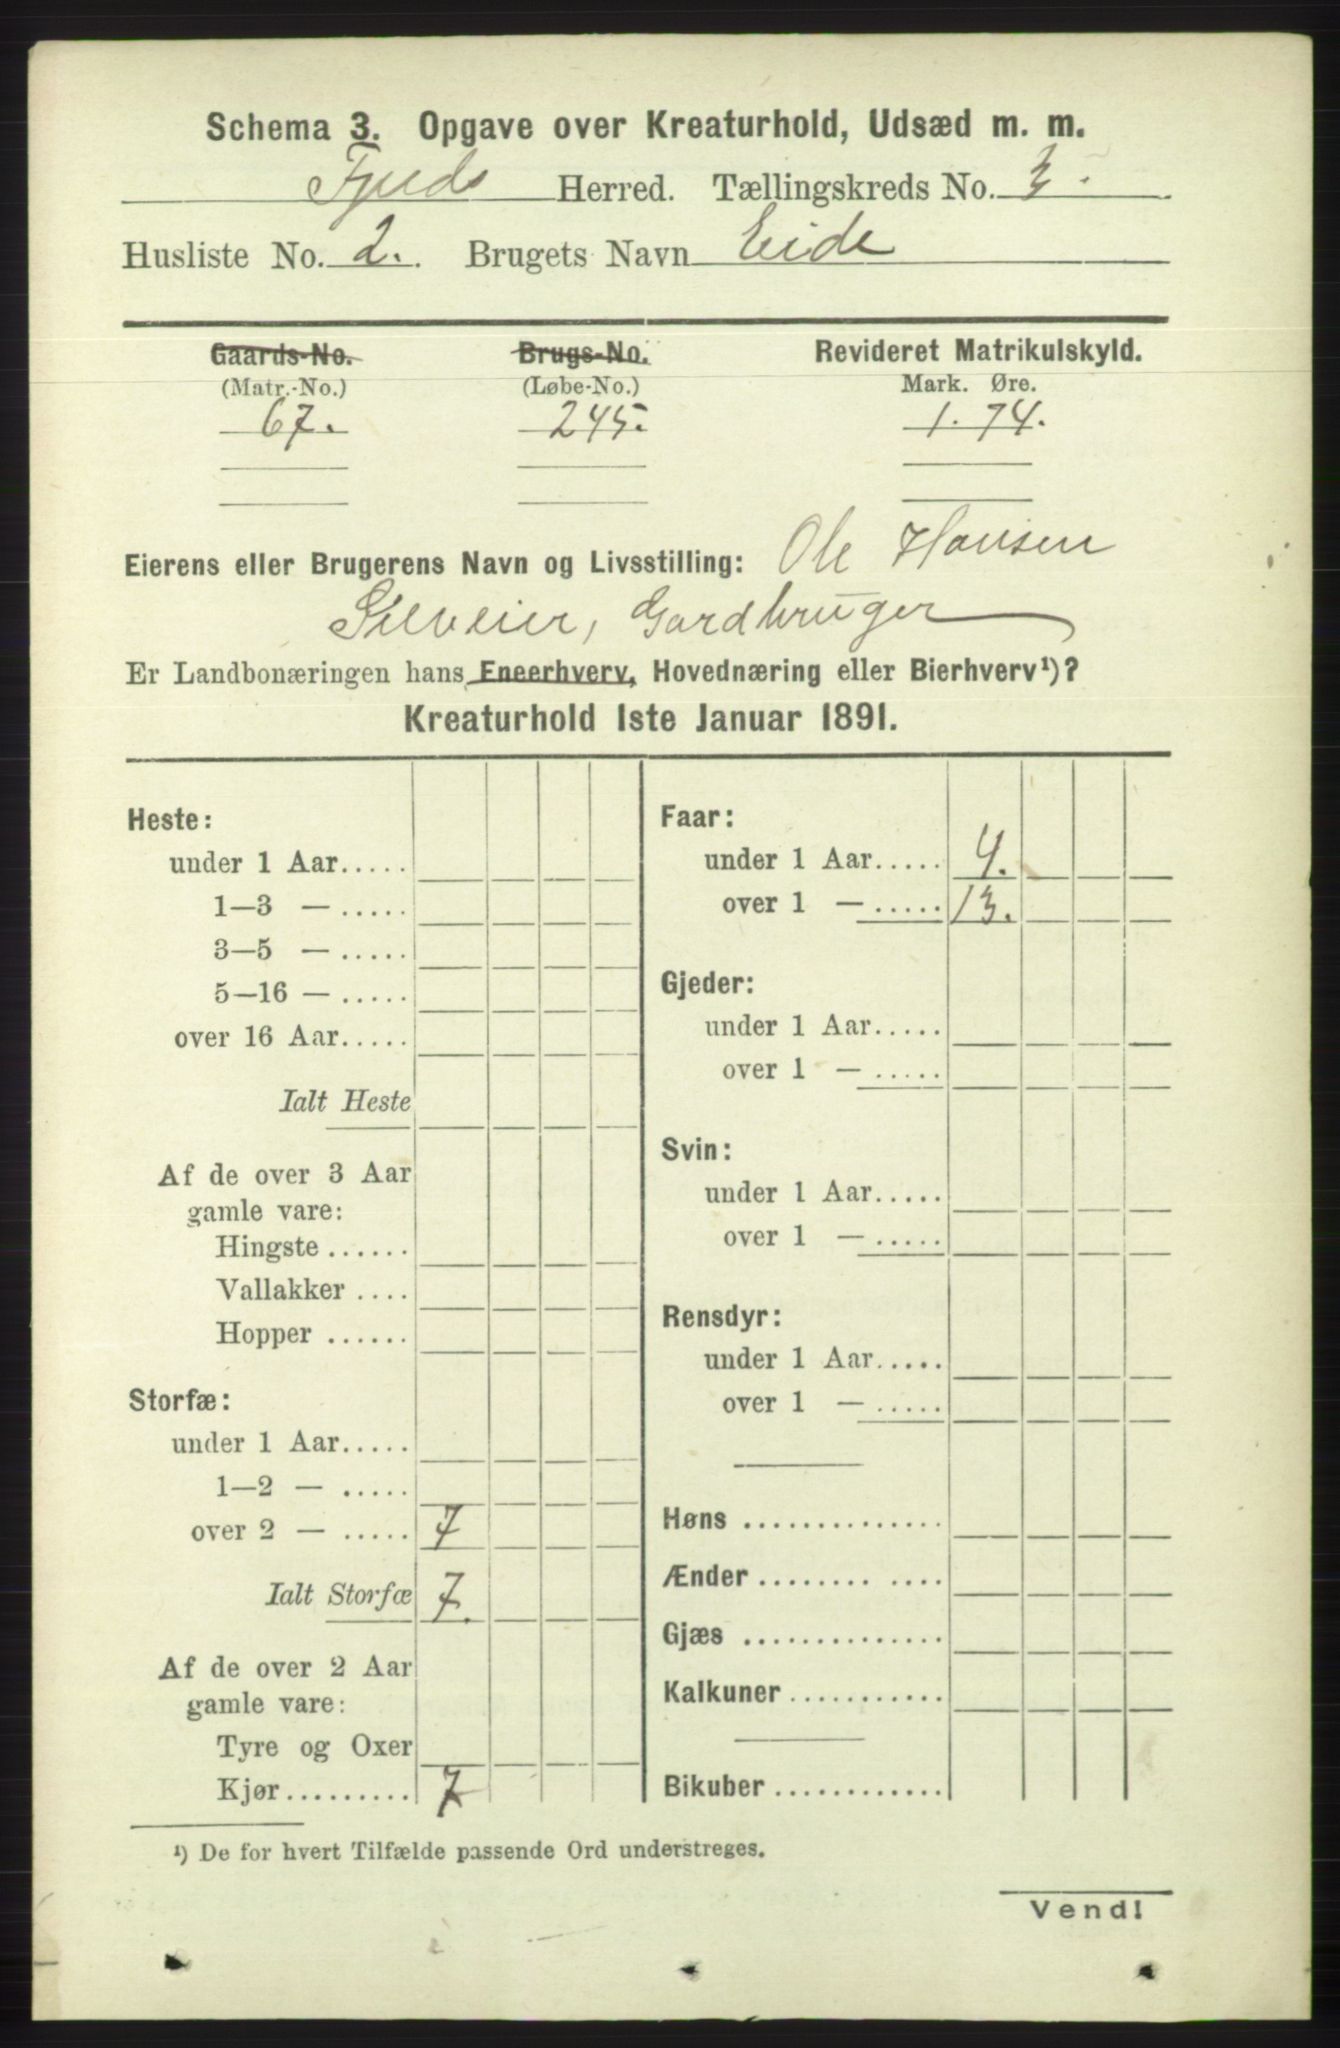 Schema 3. Opgave over Kreaturhold, Udsæd m. m.
Fjelds Herred. Tællingskreds No. 3.
Husliste No. 2. Brugets Navn Eide
Gaards-No. Brugs-No. Revideret Matrikulskyld.
(Matr.-No.) (Løbe-No.) Mark. Øre.
67. 245. 1. 74.
Eierens eller Brugerens Navn og Livsstilling: Ole Hansen
Gardbruger
Er Landbonæringen hans Eneerhverv, Hovednæring eller Bierhverv¹)?
Kreaturhold 1ste Januar 1891.
Heste:
under 1 Aar.....
1—3 — .....
3—5 — .....
5—16 — .....
over 16 Aar.....
Ialt Heste
Af de over 3 Aar
gamle vare:
Hingste ......
Vallakker ....
Hopper ......
Storfæ:
under 1 Aar.....
1—2 — .....
over 2 — ..... 7
Ialt Storfæ 7.
Af de over 2 Aar
gamle vare:
Tyre og Oxer
Kjør......... 7
Faar:
under 1 Aar..... 4.
over 1 — ..... 13.
Gjeder:
under 1 Aar.....
over 1 — .....
Svin:
under 1 Aar.....
over 1 — .....
Rensdyr:
under 1 Aar.....
over 1 — .....
Høns ..............
Ænder ........ ....
Gjæs ..............
Kalkuner ...........
Bikuber ............
¹) De for hvert Tilfælde passende Ord understreges.
Vend!